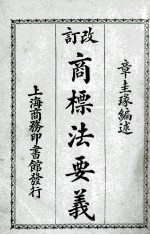 章圭瑑編述
改訂
商標法要義
上海商務印書館發行